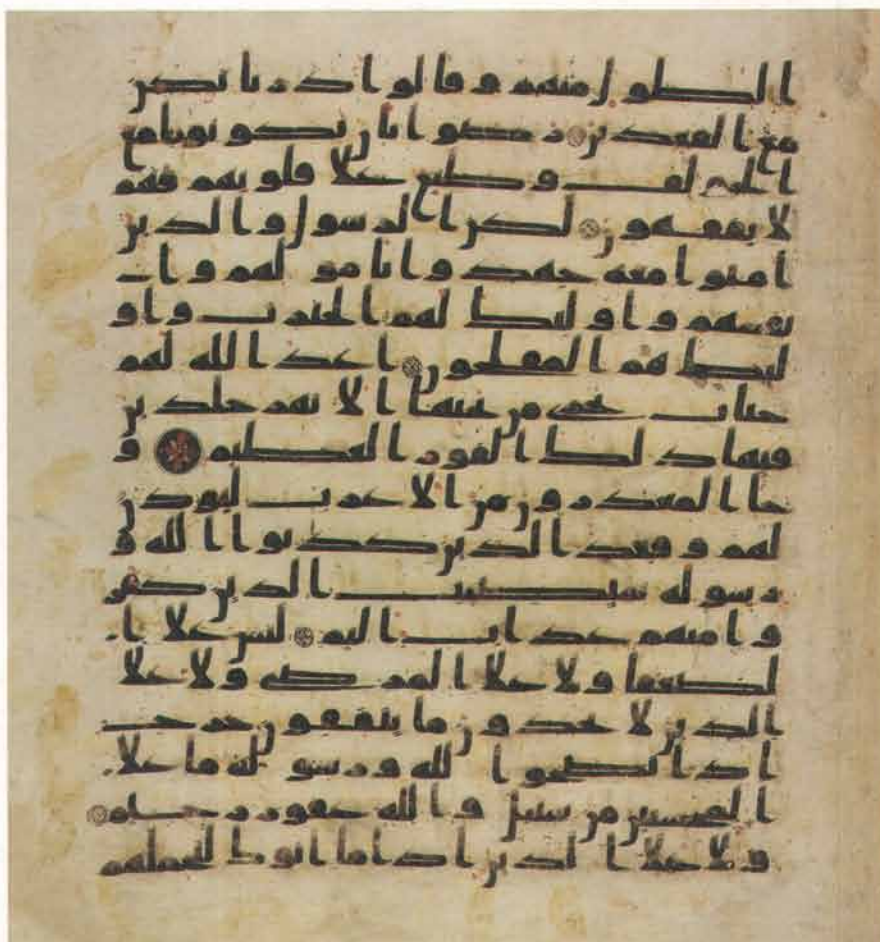 الطول منهم وقالوا ذرنا نكن
مع القعدين رضوا بان يكونوا مع
الخولف وطبع على قلوبهم فهم
لا يفقهون لكن الرسول والذين
امنوا معه جهدوا بامولهم وا
نفسهم واوليك لهم الخيرت واو
ليك هم المفلحون اعد الله لهم
جنات تجرى من تحتها الانهر خلدين
فيها ذلك الفوز العظيم و
جا المعذرون من الاعرب ليوذن
لهم وقعد الذين كذبوا الله و
رسوله سيصيب الذين كفر
وا منهم عذاب اليم ليس على ا
لضعفا ولا على المرضى ولا على
الذين لا يجدون ما ينفقون حرج
اذا نصحوا لله ورسوله ما على
المحسنين من سبيل والله غفور رحيم
ولا على الذين اذا ما اتوك لتحملهم